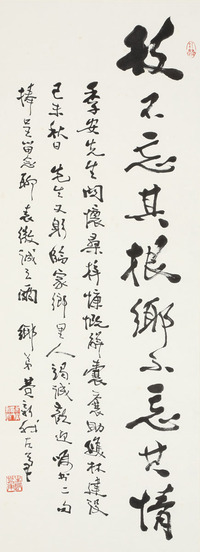 枝不忘其根鄉不忘其情
季安先生関懷桑梓慷慨解囊奮助獲林建設
己未秋日 先生又躬臨家鄉里人竭誠歡迎囑書二句
捧呈留念聊表微誠之爾 鄉弟黄